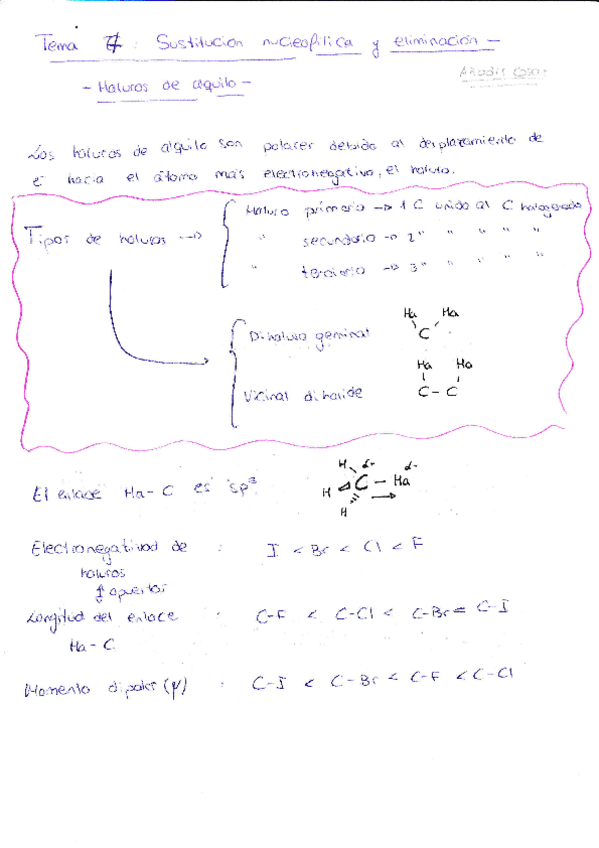 Tema 7 : Sustitución nucleofílica y eliminación -
- Haluros de alquilo -
Añadir cosas
Los haluros de alquilo son polares debido al desplazamiento de
e⁻ hacia el átomo más electronegativo, el haluro.
Tipos de haluros --> Haluro primario --> 1 C unido al C halogenado
" secundario -> 2 " " " " "
" terciario -> 3 " " " " "
Dihaluro geminal Ha Ha C
Vicinal dihalide Ha Ha C - C
El enlace Ha-C es sp³ H H H C - Ha δ- δ-
Electronegativad de : I < Br < Cl < F
haluros
↑ opuestos
Longitud del enlace : C-F < C-Cl < C-Br = C-I
Ha-C
Momento dipolar (μ) : C-I < C-Br < C-F < C-Cl